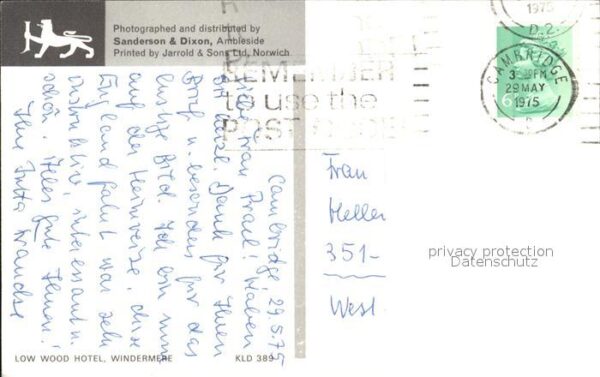 Photographed and distributed by
Sanderson & Dixon, Ambleside
Printed by Jarrold & Sons Ltd, Norwich
REMEMBER
to use the
POST CODE
1975
CAMBRIDGE
3 30 PM
29 MAY
1975
6
Cambridge 29.5.75
Liebe Frau
Haben
Sie herzl. Dank für Ihren
Brief u. besonders für das
lustige Bild. Ich bin nun
auf der Heimreise, diese
England fahrt war sehr
instruktiv, interessant u.
schön. Alles Gute Ihnen!
Ihre Jutta
Frau
Heller
351-
West
privacy protection
Datenschutz
LOW WOOD HOTEL, WINDERMERE
KLD 389